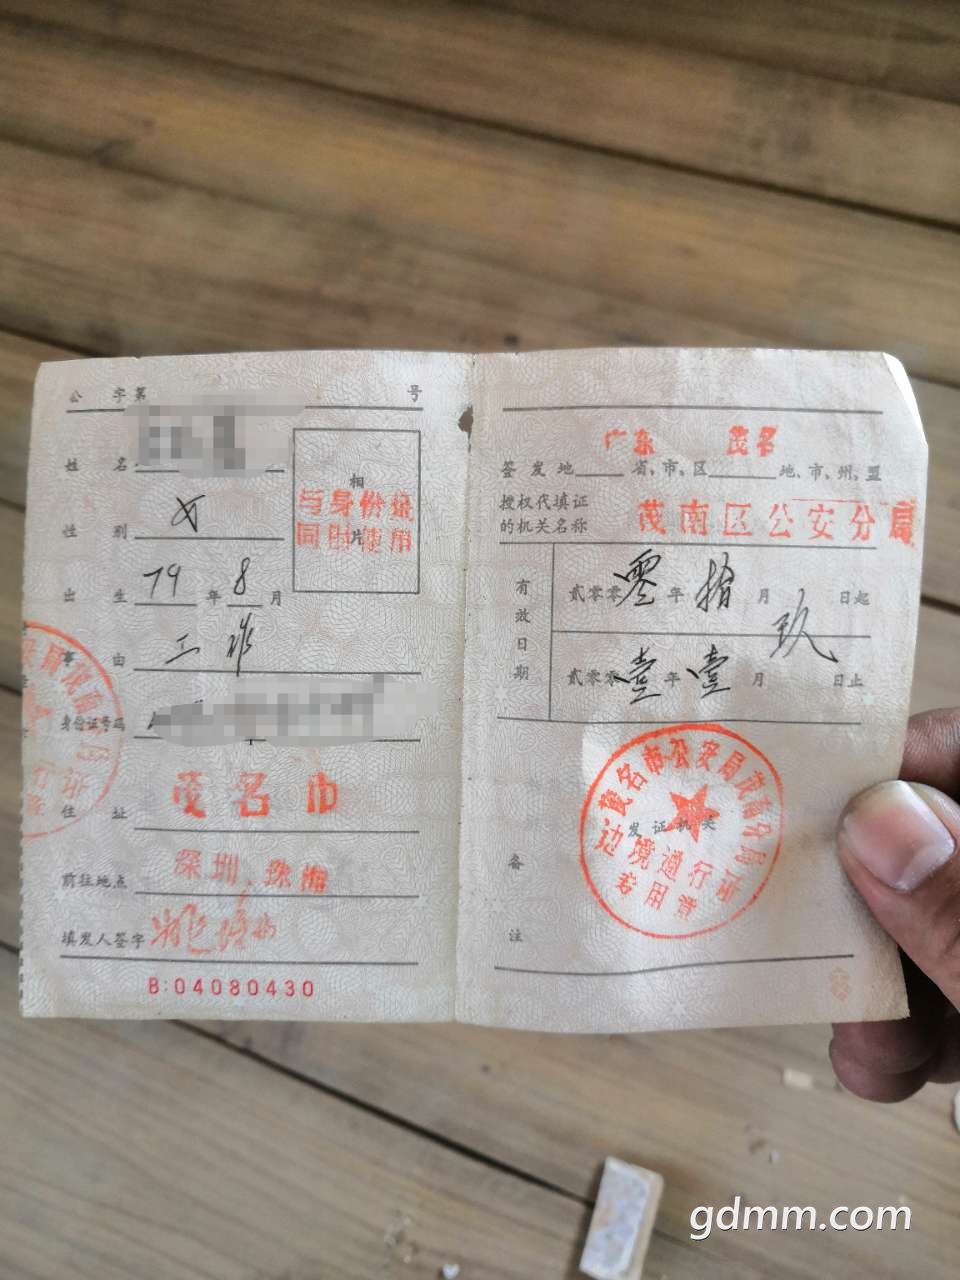 公 字第 号
姓 名
相
片
与身份证
同时使用
性 别 女
出 生 79 年 8 月
事 由 工作
身份证号码
住 址 茂名市
前往地点 深圳、珠海
填发人签字
B:04080430
广东 茂名
签发地 省、市、区 地、市、州、盟
授权代填证
的机关名称
茂南区公安分局
有效日期
贰零零零年拾月玖日起
贰零零壹年壹月 日止
备 注
发证机关
茂名市公安局茂南分局
边境通行证
专用章
gdmm.com